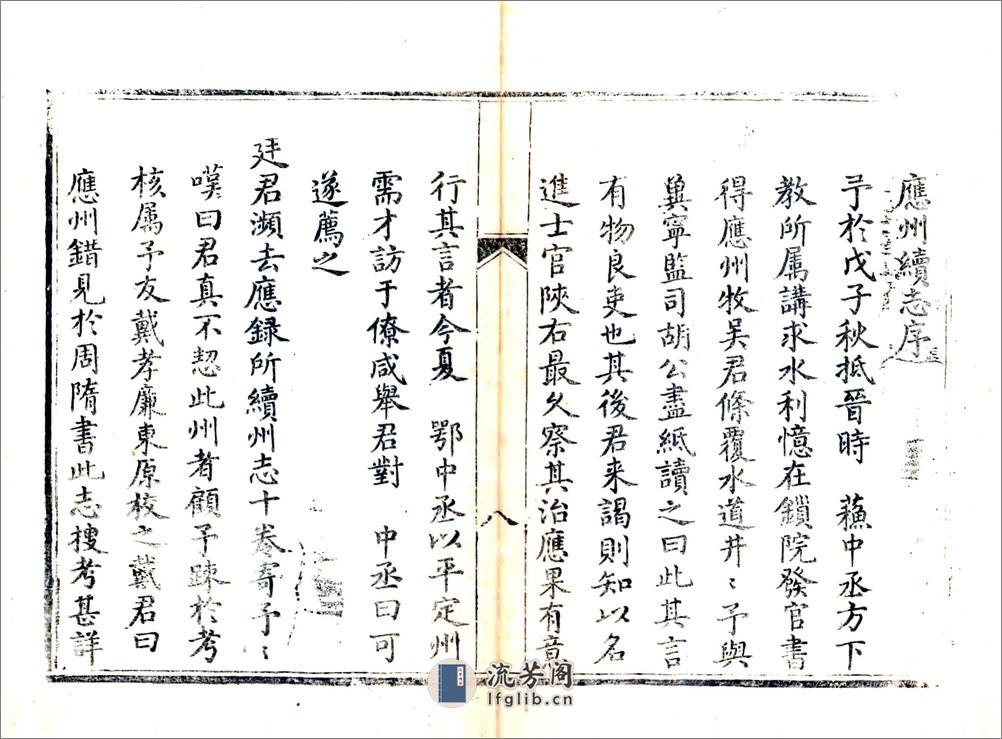 應州續志序
予於戊子秋抵晉時　蘓中丞方下
教所属講求水利憶在鎖院發官書
得應州牧吳君條覆水道井〻予與
兾寧監司胡公盡紙讀之曰此其言
有物良吏也其後君来謁則知以名
進士官陜右最久察其治應果有意
八
行其言者今夏　鄂中丞以平定州
需才訪于僚咸舉君對　中丞曰可
遂薦之
廷君瀕去應録所續州志十卷寄予〻
嘆曰君真不愸此州者顧予踈於考
核属予友戴孝廉東原校之戴君曰
應州錯見於周隋書此志搜考甚詳
流芳阁
lfglib.cn